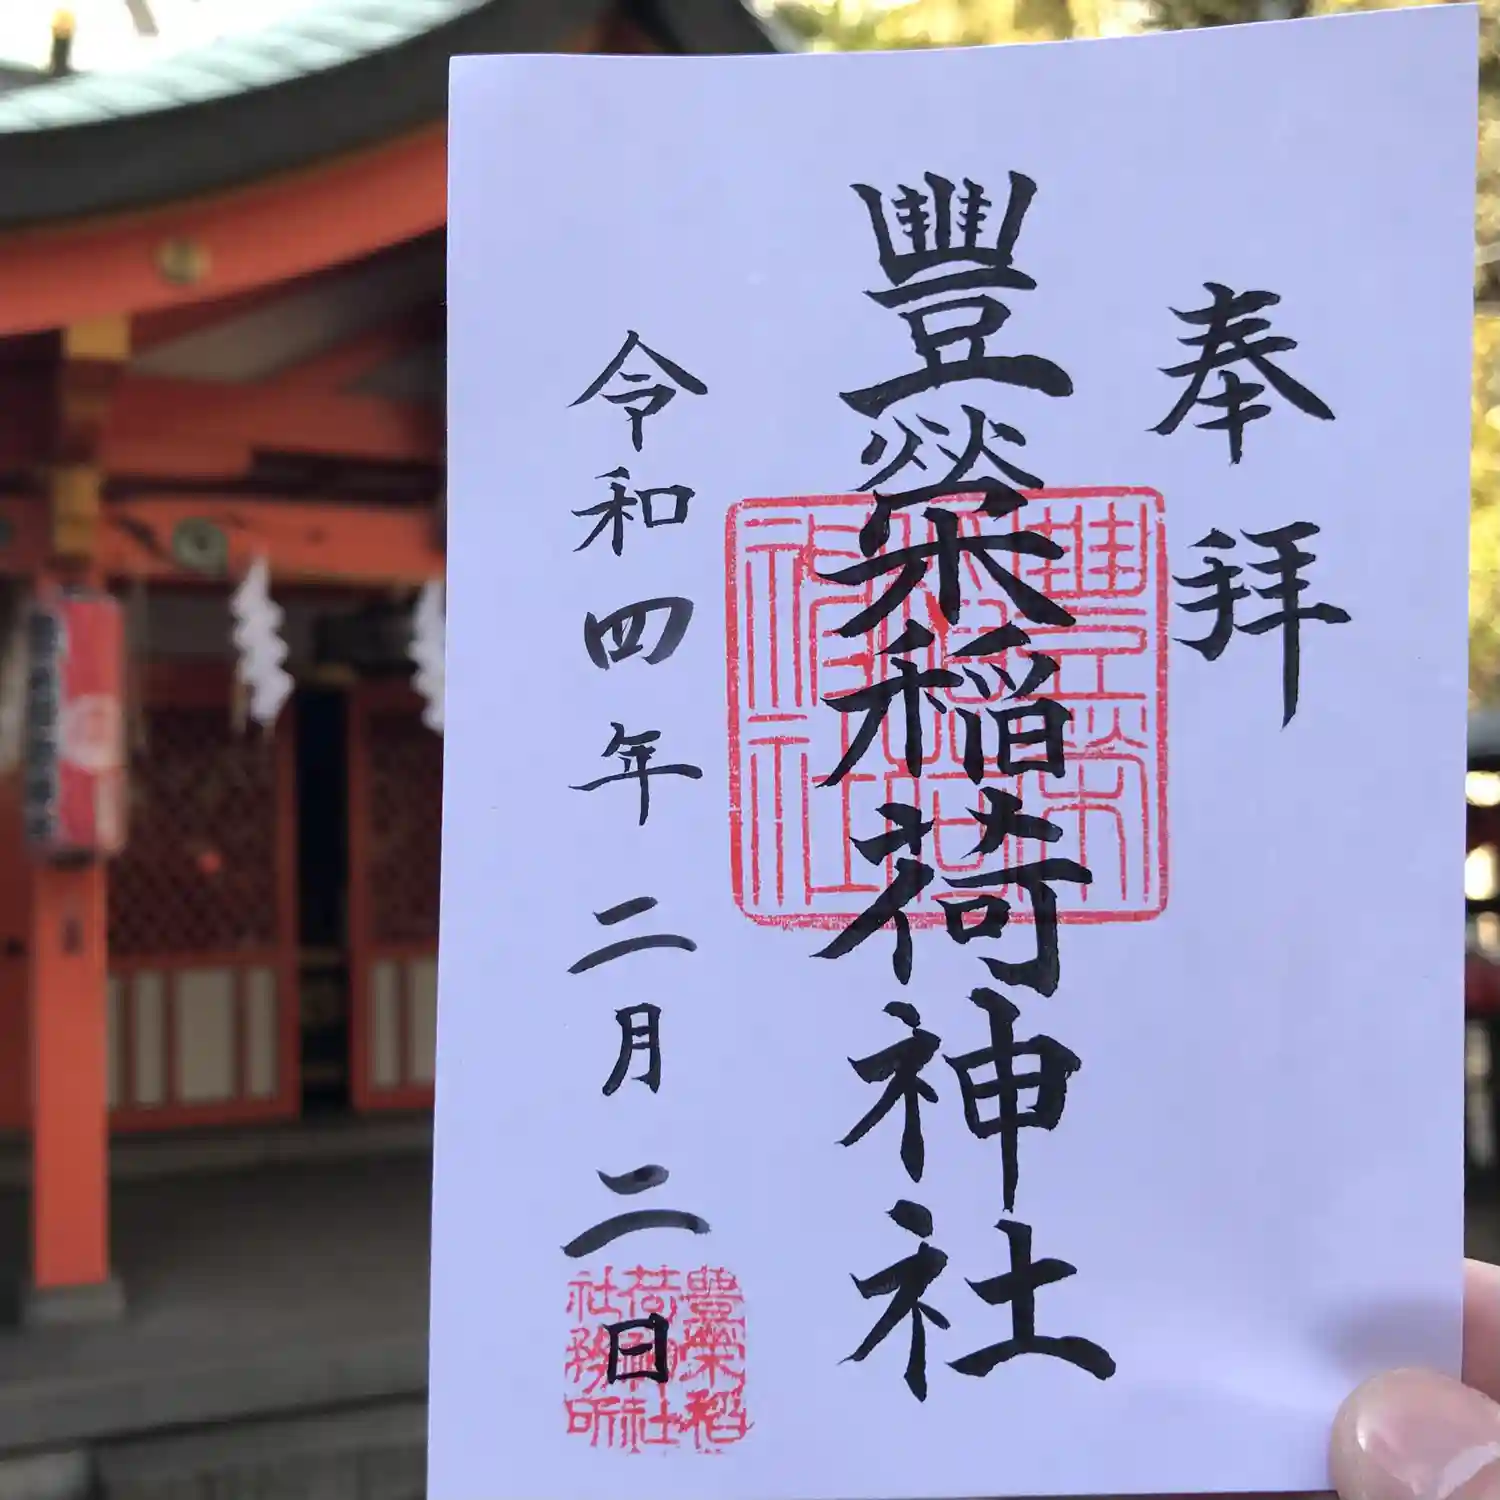 奉拝
豐榮稲荷神社
令和四年二月二日
豊榮
稲荷
神社
豐榮稻
荷神社
社務所